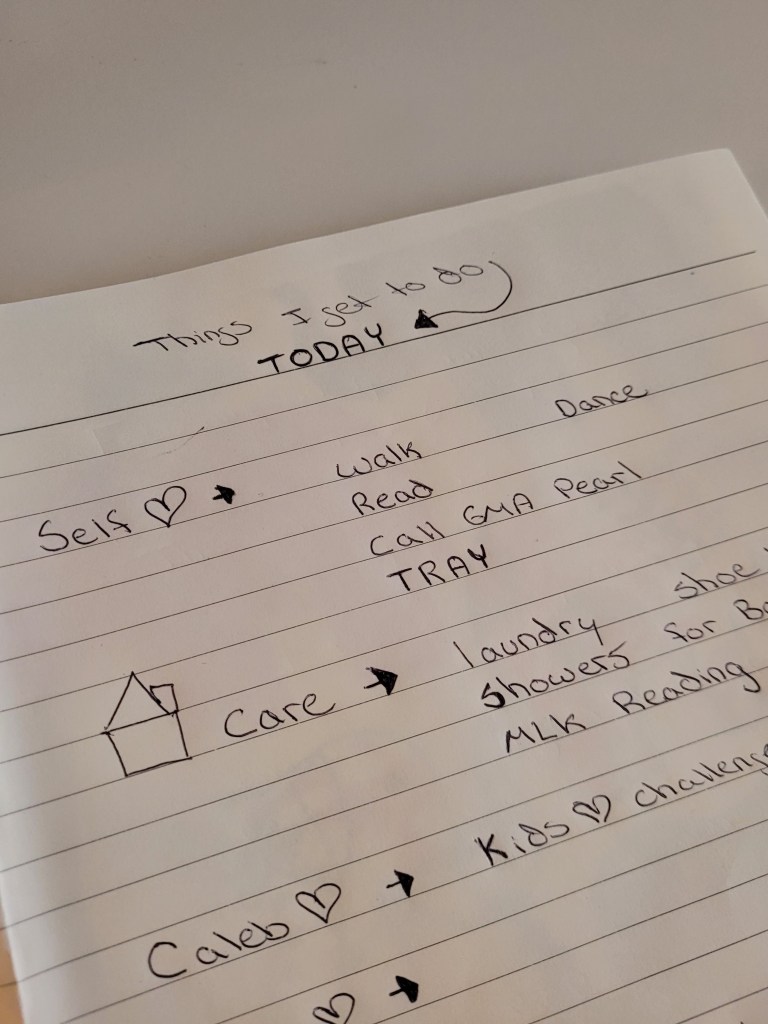 Things I get to do
TODAY
Dance
Walk
Self ♡ → Read
Call GMA Pearl
TRAY
laundry shoe
Care → Showers for
MLK Reading
Caleb ♡ → Kids ♡
♡ →